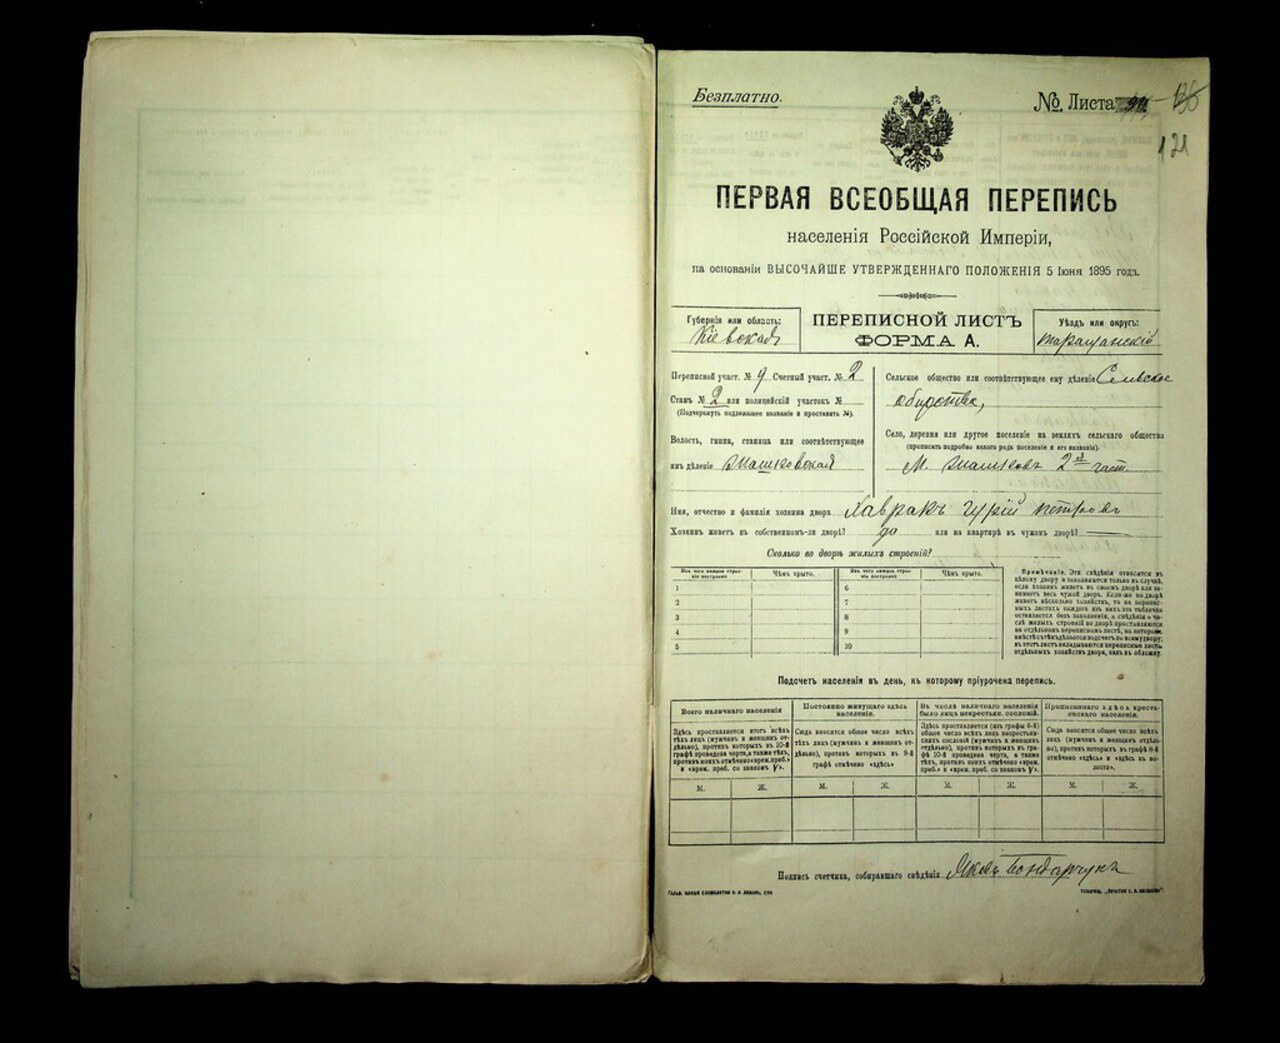 Безплатно.
№ Листа
121
ПЕРВАЯ ВСЕОБЩАЯ ПЕРЕПИСЬ
населенія Россійской Имперіи,
на основаніи ВЫСОЧАЙШЕ УТВЕРЖДЕННАГО ПОЛОЖЕНІЯ 5 Іюня 1895 года.
Губернія или область:
Кіевская
ПЕРЕПИСНОЙ ЛИСТЪ
ФОРМА А.
Уѣздъ или округъ:
Таращанскій
Переписной участ. № 9 Счетный участ. № 2
Станъ № 2 или полицейскій участокъ №
(Подчеркнуть подлежащее названіе и проставить №).
Волость, гмина, станица или соотвѣтствующее
имъ дѣленіе
Сельское общество или соотвѣтствующее ему дѣленіе Сельское
общество,
Село, деревня или другое поселеніе на земляхъ сельскаго общества
(прописать подробно какого рода поселеніе и его названіе).
М. 2ая част.
Имя, отчество и фамилія хозяина двора Хавракъ Гурій Петровъ
Хозяинъ живетъ въ собственномъ-ли дворѣ? да или на квартирѣ въ чужомъ дворѣ?
Сколько во дворѣ жилыхъ строеній?
Изъ чего каждое строеніе построено
Чѣмъ крыто.
Изъ чего каждое строеніе построено
Чѣмъ крыто.
1
2
3
4
5
6
7
8
9
10
Примѣчаніе. Эти свѣдѣнія относятся къ
цѣлому двору и заполняются только въ случаѣ,
если хозяинъ живетъ въ своемъ дворѣ или занимаетъ
весь чужой дворъ. Если-же во дворѣ
живетъ нѣсколько хозяйствъ, то на переписныхъ
листахъ каждаго изъ нихъ эта табличка
оставляется безъ заполненія, а свѣдѣнія о числѣ
жилыхъ строеній во дворѣ проставляются
на отдѣльномъ переписномъ листѣ, на которомъ
вмѣстѣ съ тѣмъ дѣлается подсчетъ по всему двору;
въ этотъ листъ вкладываются переписные листы
отдѣльныхъ хозяйствъ двора, какъ въ обложку.
Подсчетъ населенія въ день, къ которому пріурочена перепись.
Всего наличнаго населенія
Здѣсь проставляется итогъ всѣхъ
тѣхъ лицъ (мужчинъ и женщинъ отдѣльно),
противъ которыхъ въ 10-й
графѣ проведена черта, а также тѣхъ,
противъ коихъ отмѣчено «врем. преб.»
и «врем. преб. со знакомъ V».
Постоянно живущаго здѣсь
населенія.
Сюда вносится общее число всѣхъ
тѣхъ лицъ (мужчинъ и женщинъ отдѣльно),
противъ которыхъ въ 9-й
графѣ отмѣчено «здѣсь»
Въ числѣ наличнаго населенія
было лицъ некрестьян. сословій.
Здѣсь проставляется (изъ графы 6-й)
общее число лицъ некрестьянскихъ
сословій (мужчинъ и женщинъ
отдѣльно), противъ которыхъ въ графѣ
10-й проведена черта, а также
тѣхъ, противъ коихъ отмѣчено «врем.
преб.» и «врем. преб. со знакомъ V».
Приписаннаго здѣсь крестьянскаго
населенія.
Сюда вносится общее число всѣхъ
лицъ (мужчинъ и женщинъ отдѣльно),
противъ которыхъ въ графѣ 8-й
отмѣчено «здѣсь» и «здѣсь въ волости».
М. Ж. М. Ж. М. Ж. М. Ж.
Подпись счетчика, собиравшаго свѣдѣнія Яковъ Бондарчукъ